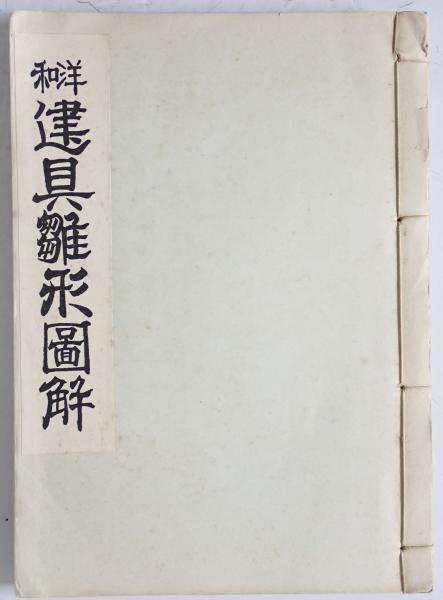 和洋
建具雛形圖解